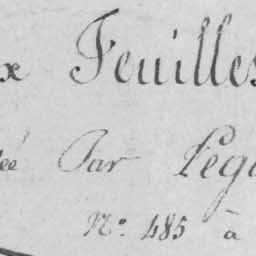 x Feuilles
ée Par Lég
N.° 485 à